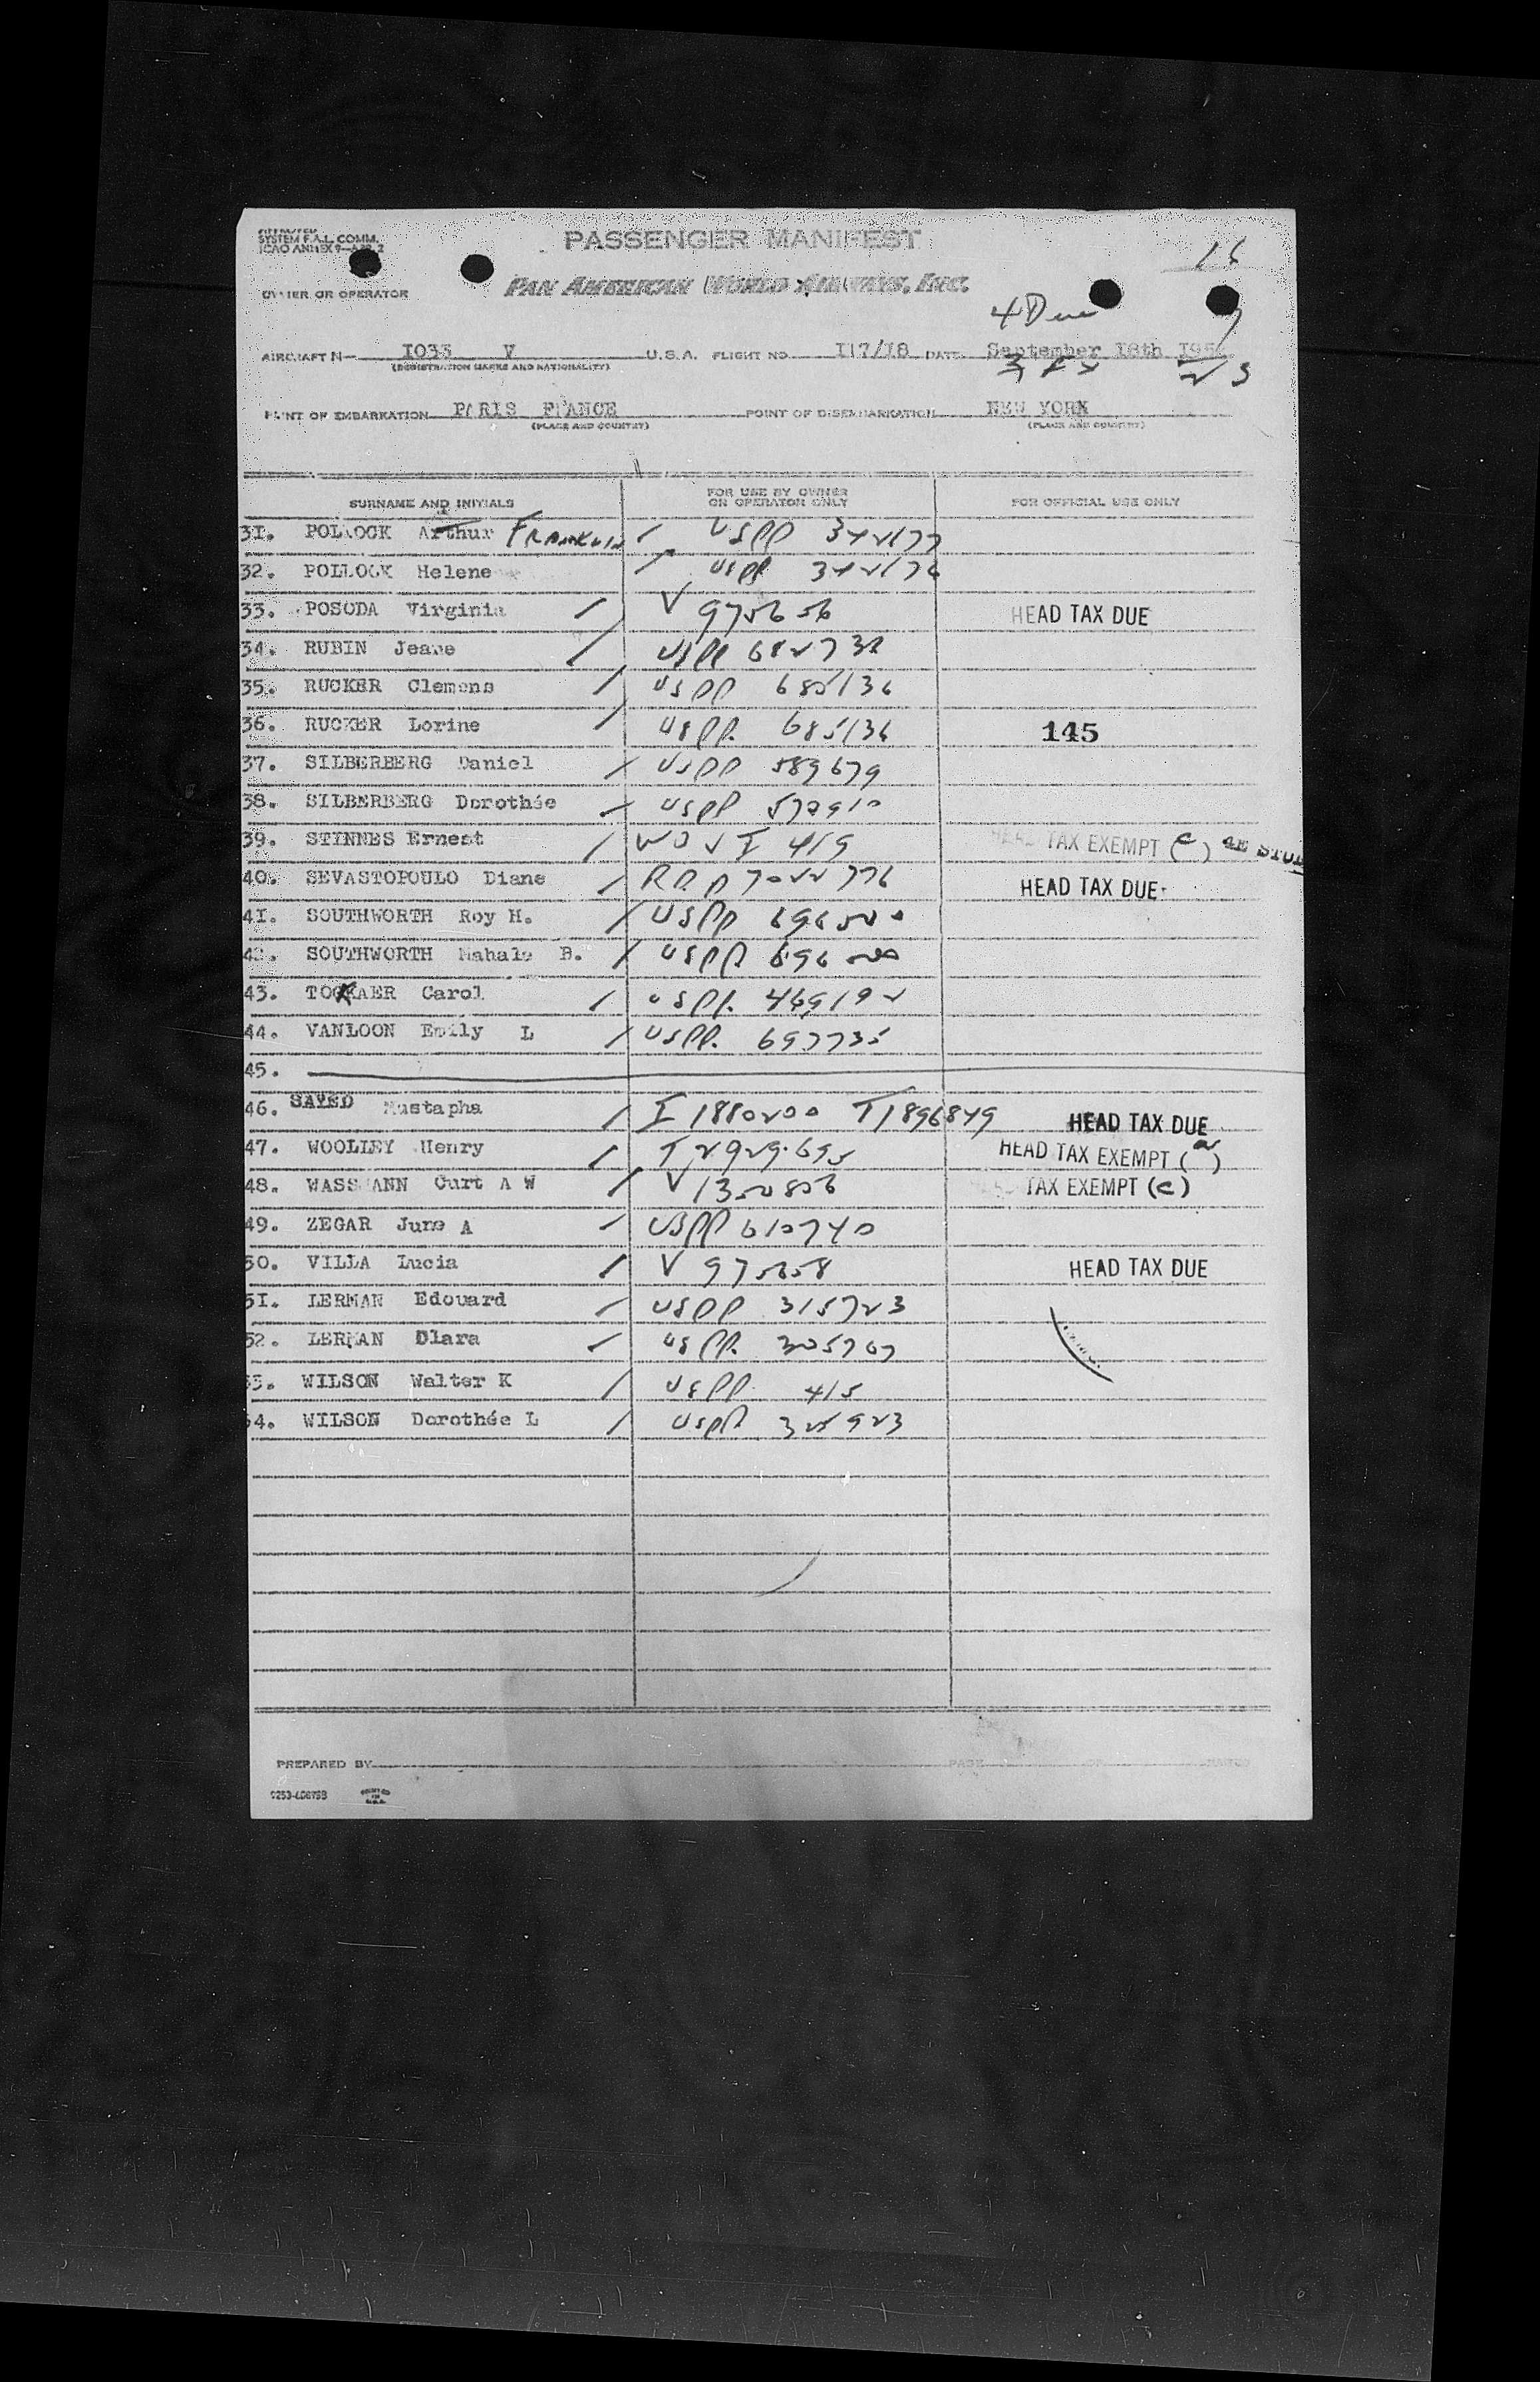 SYSTEM F.A.L. COMM.
ICAO ANNEX 9
PASSENGER MANIFEST
16
OWNER OR OPERATOR PAN AMERICAN WORLD AIRWAYS, INC.
4 Due
AIRCRAFT N— I035 V U.S.A. FLIGHT NO. II7/I8 DATE September 18th
(REGISTRATION MARKS AND NATIONALITY)
3 Ex
POINT OF EMBARKATION PARIS FRANCE POINT OF DISEMBARKATION NEW YORK
(PLACE AND COUNTRY) (PLACE AND COUNTRY)
SURNAME AND INITIALS FOR USE BY OWNER OR OPERATOR ONLY FOR OFFICIAL USE ONLY
31. POLLOCK Arthur FRANKLIN / USPP 342177
32. POLLOCK Helene / USPP 342176
33. POSODA Virginia / V 975656 HEAD TAX DUE
34. RUBIN Jeane / USPP 682732
35. RUCKER Clemens / USPP 685136
36. RUCKER Lorine / USPP. 685136 145
37. SILBERBERG Daniel / USPP 589679
38. SILBERBERG Dorothée / USPP 572910
39. STINNES Ernest / 419 HEAD TAX EXEMPT (c) 4E STUD
40. SEVASTOPOULO Diane / RPP 7022776 HEAD TAX DUE
4I. SOUTHWORTH Roy H. / USPP 696500
42. SOUTHWORTH Mahale B. / USPP 696500
43. Carol / USPP. 469192
44. VANLOON Emily L / USPP. 697735
45.
46. SAYED Mustapha / I 1880200 T1896849 HEAD TAX DUE
47. WOOLLEY Henry / T 2929695 HEAD TAX EXEMPT (a)
48. WASSMANN Curt A W / V 1350806 TAX EXEMPT (c)
49. ZEGAR June A / USPP 610740
50. VILLA Lucia / V 975658 HEAD TAX DUE
5I. LERMAN Edouard / USPP 315723
52. LERMAN Dlara / USPP. 305707
53. WILSON Walter K / USPP 415
54. WILSON Dorothée L / USPP 325923
PREPARED BY PAGE OF